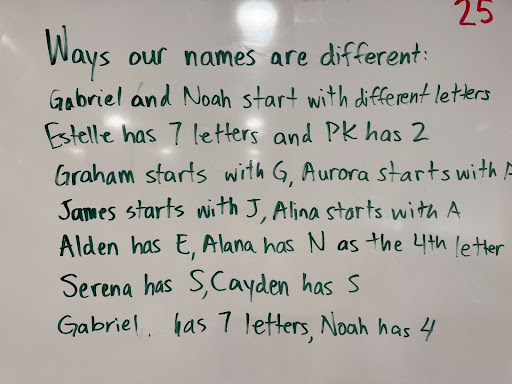 25
Ways our names are different:
Gabriel and Noah start with different letters
Estelle has 7 letters and PK has 2
Graham starts with G, Aurora starts with A
James starts with J, Alina starts with A
Alden has E, Alana has N as the 4th letter
Serena has S, Cayden has S
Gabriel. has 7 letters, Noah has 4